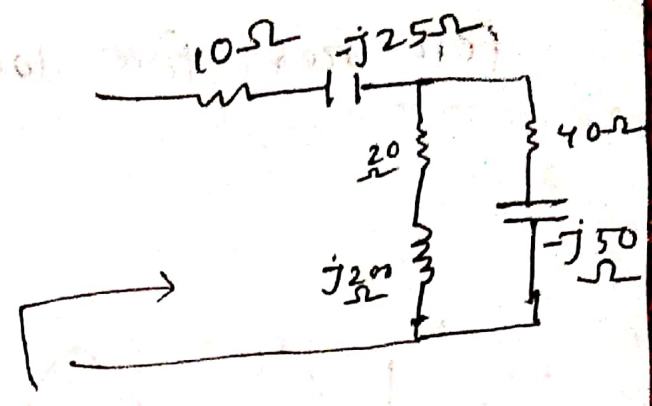 10Ω -j25Ω
20
Ω
40Ω
j200
Ω
-j50
Ω